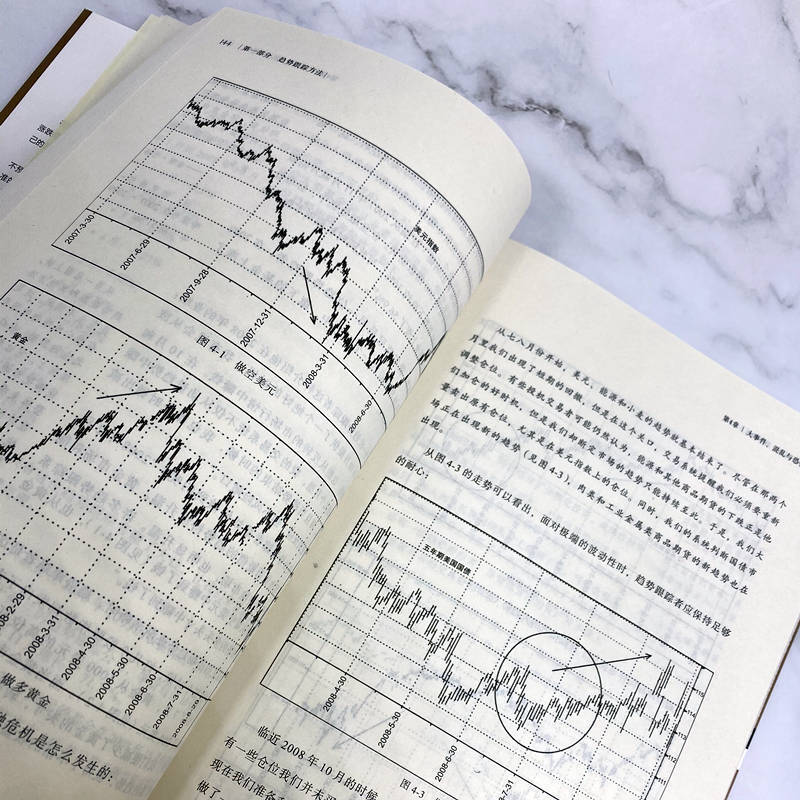 144 第一部分 趋势跟踪方法
美元指数
2007-3-30
2007-6-29
2007-9-28
2007-12-31
2008-3-31
2008-6-30
图 4-1 做空美元
黄金
2008-2-29
2008-3-31
2008-4-30
2008-5-30
2008-6-30
2008-7-31
2008-8-29
做多黄金
危机是怎么发生的：
涨跌
己的
不预
第4章 大事件、混乱与恐
从七八月份开始，美元、能源和小麦的趋势就基本结束了。尽管在那两个
月里我们出现了短期的回撤，但是在这个关口，交易系统提醒我们必须要重新
调整仓位。有些投机交易者可能仍然认为，能源和其他商品期货的下跌正是他
们加仓的好时机，但是我们却断定市场的趋势只能持续至此。于是，我们大
量卖出原有仓位，尤其是在美元指数上的仓位。同时，我们的系统判断国债市
场正在出现新的趋势（见图 4-3），肉类和工业金属类商品期货的新趋势也在
出现。
从图 4-3 的走势可以看出，面对极端的波动性时，趋势跟踪者应保持足够
的耐心：
五年期美国国债
115
113
112
111
2008-4-30
2008-5-30
2008-6-30
7-31
图 4-3
临近 2008 年 10 月的时候
有一些仓位我们并未
现在我们准备
做了一